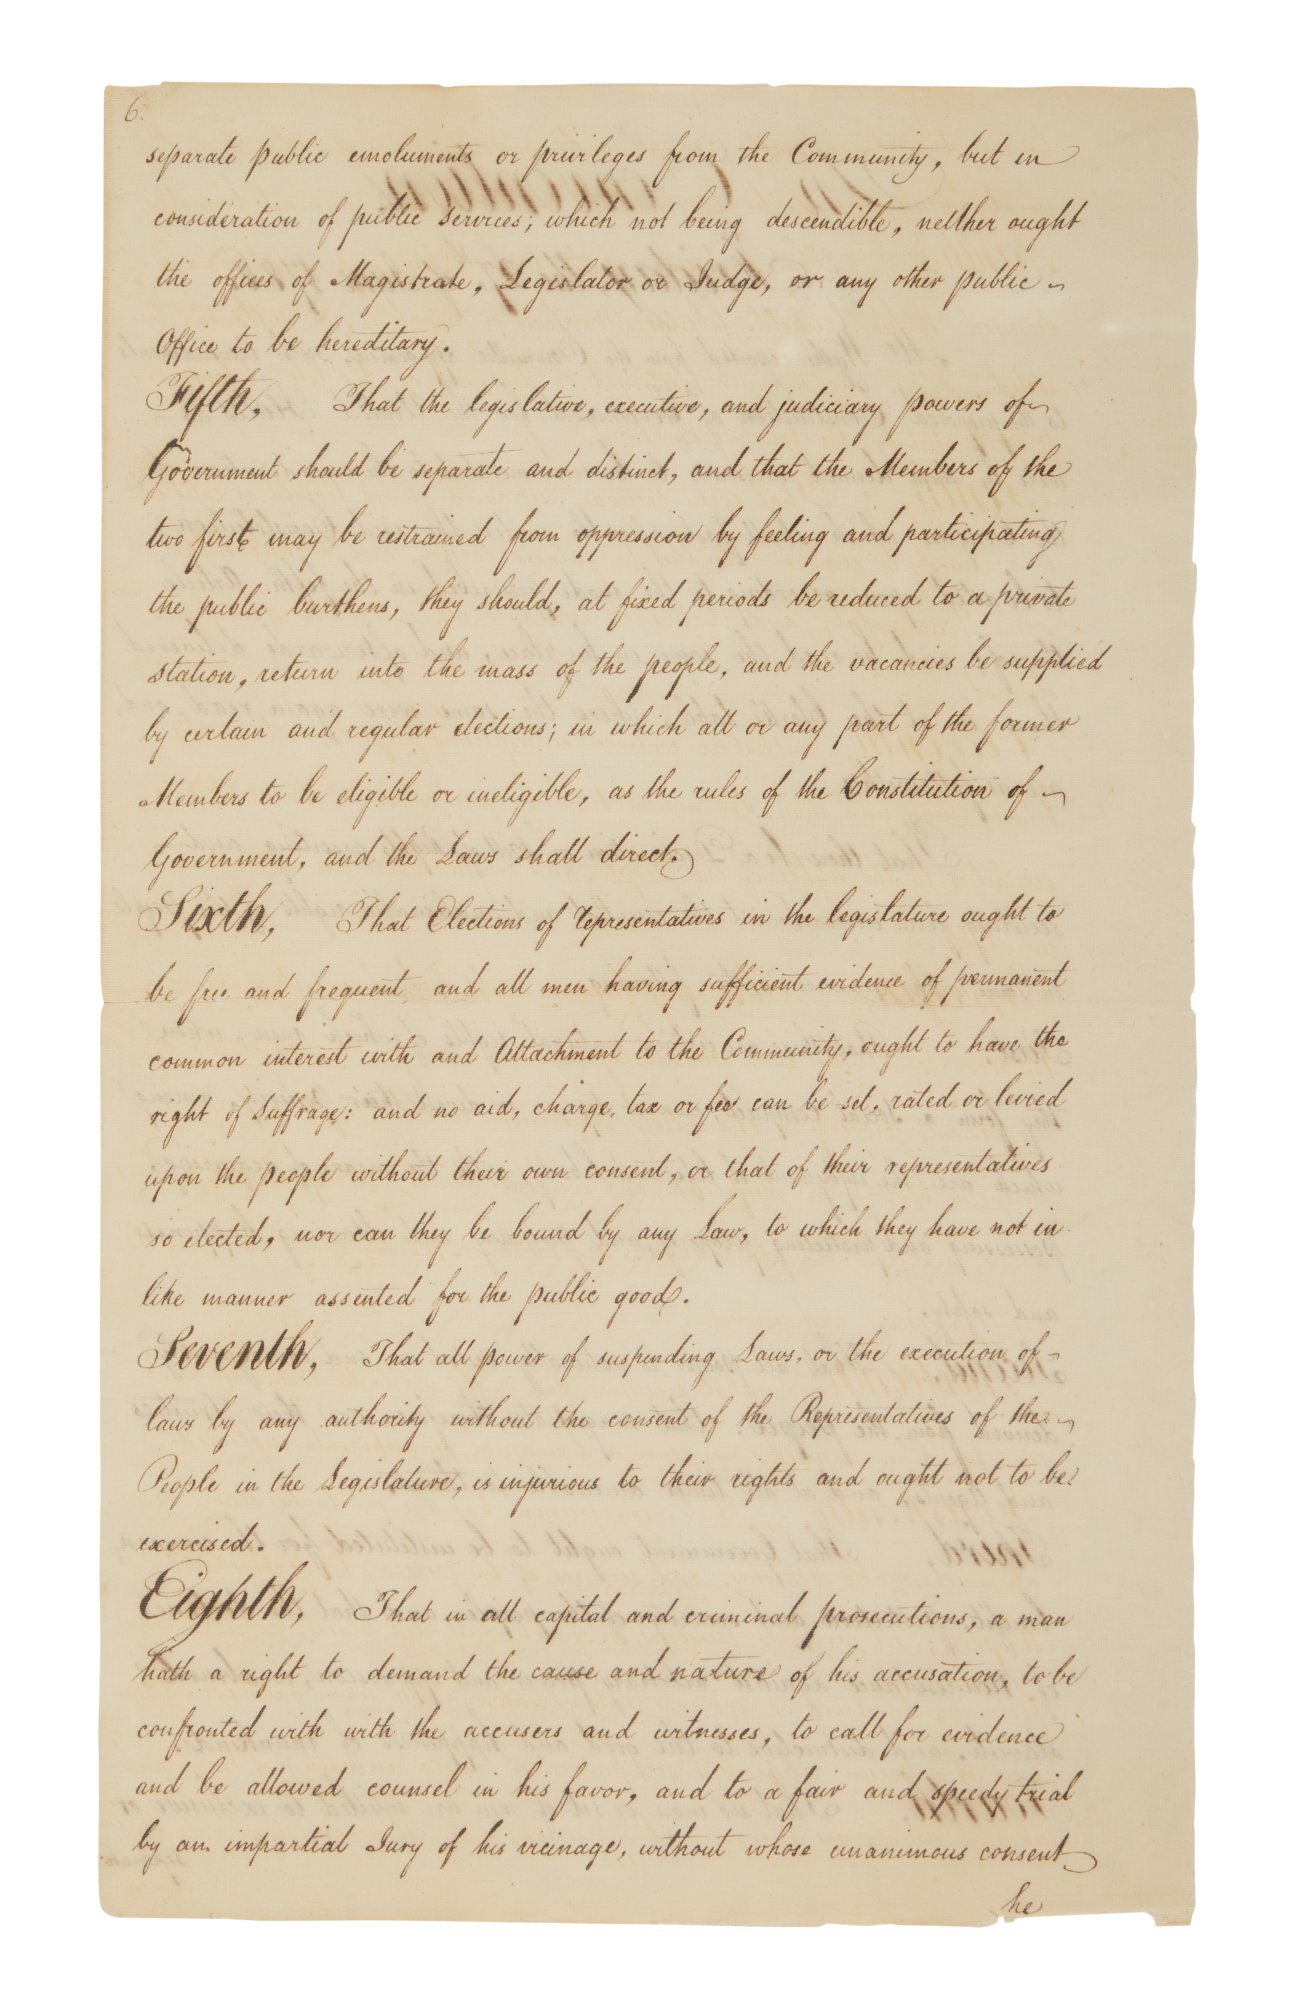 6.
separate public emoluments or privileges from the Community, but in
consideration of public services; which not being descendible, neither ought
the offices of Magistrate, Legislator or Judge, or any other public
Office to be hereditary.
Fifth, That the legislative, executive, and judiciary powers of
Government should be separate and distinct, and that the Members of the
two first may be restrained from oppression by feeling and participating
the public burthens, they should, at fixed periods be reduced to a private
station, return into the mass of the people, and the vacancies be supplied
by certain and regular elections; in which all or any part of the former
Members to be eligible or ineligible, as the rules of the Constitution of
Government, and the Laws shall direct.
Sixth, That Elections of representatives in the legislature ought to
be free and frequent, and all men having sufficient evidence of permanent
common interest with and Attachment to the Community, ought to have the
right of Suffrage: and no aid, charge, tax or fee can be set, rated or levied
upon the people without their own consent, or that of their representatives
so elected, nor can they be bound by any Law, to which they have not in
like manner assented for the public good.
Seventh, That all power of suspending Laws, or the execution of
laws by any authority without the consent of the Representatives of the
People in the Legislature, is injurious to their rights and ought not to be
exercised.
Eighth, That in all capital and criminal prosecutions, a man
hath a right to demand the cause and nature of his accusation, to be
confronted with with the accusers and witnesses, to call for evidence
and be allowed counsel in his favor, and to a fair and speedy trial
by an impartial Jury of his vicinage, without whose unanimous consent
he